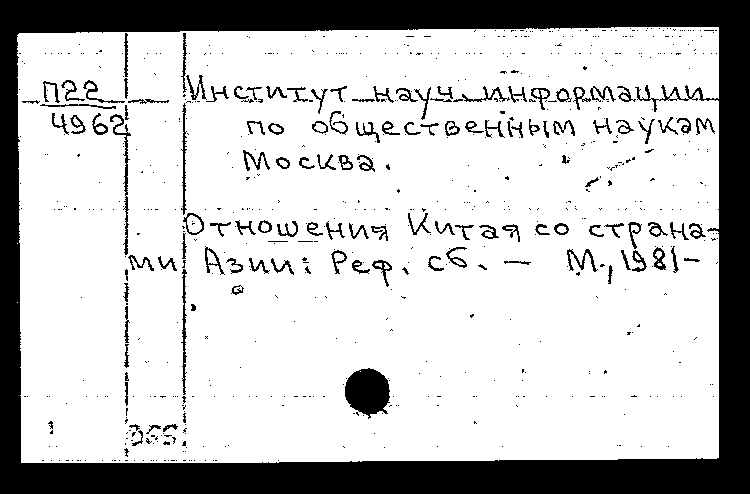 П22 Институт науч. информации
4962 по общественным наукам
Москва.
Отношения Китая со страна-
ми Азии: Реф. сб. — М., 1981-